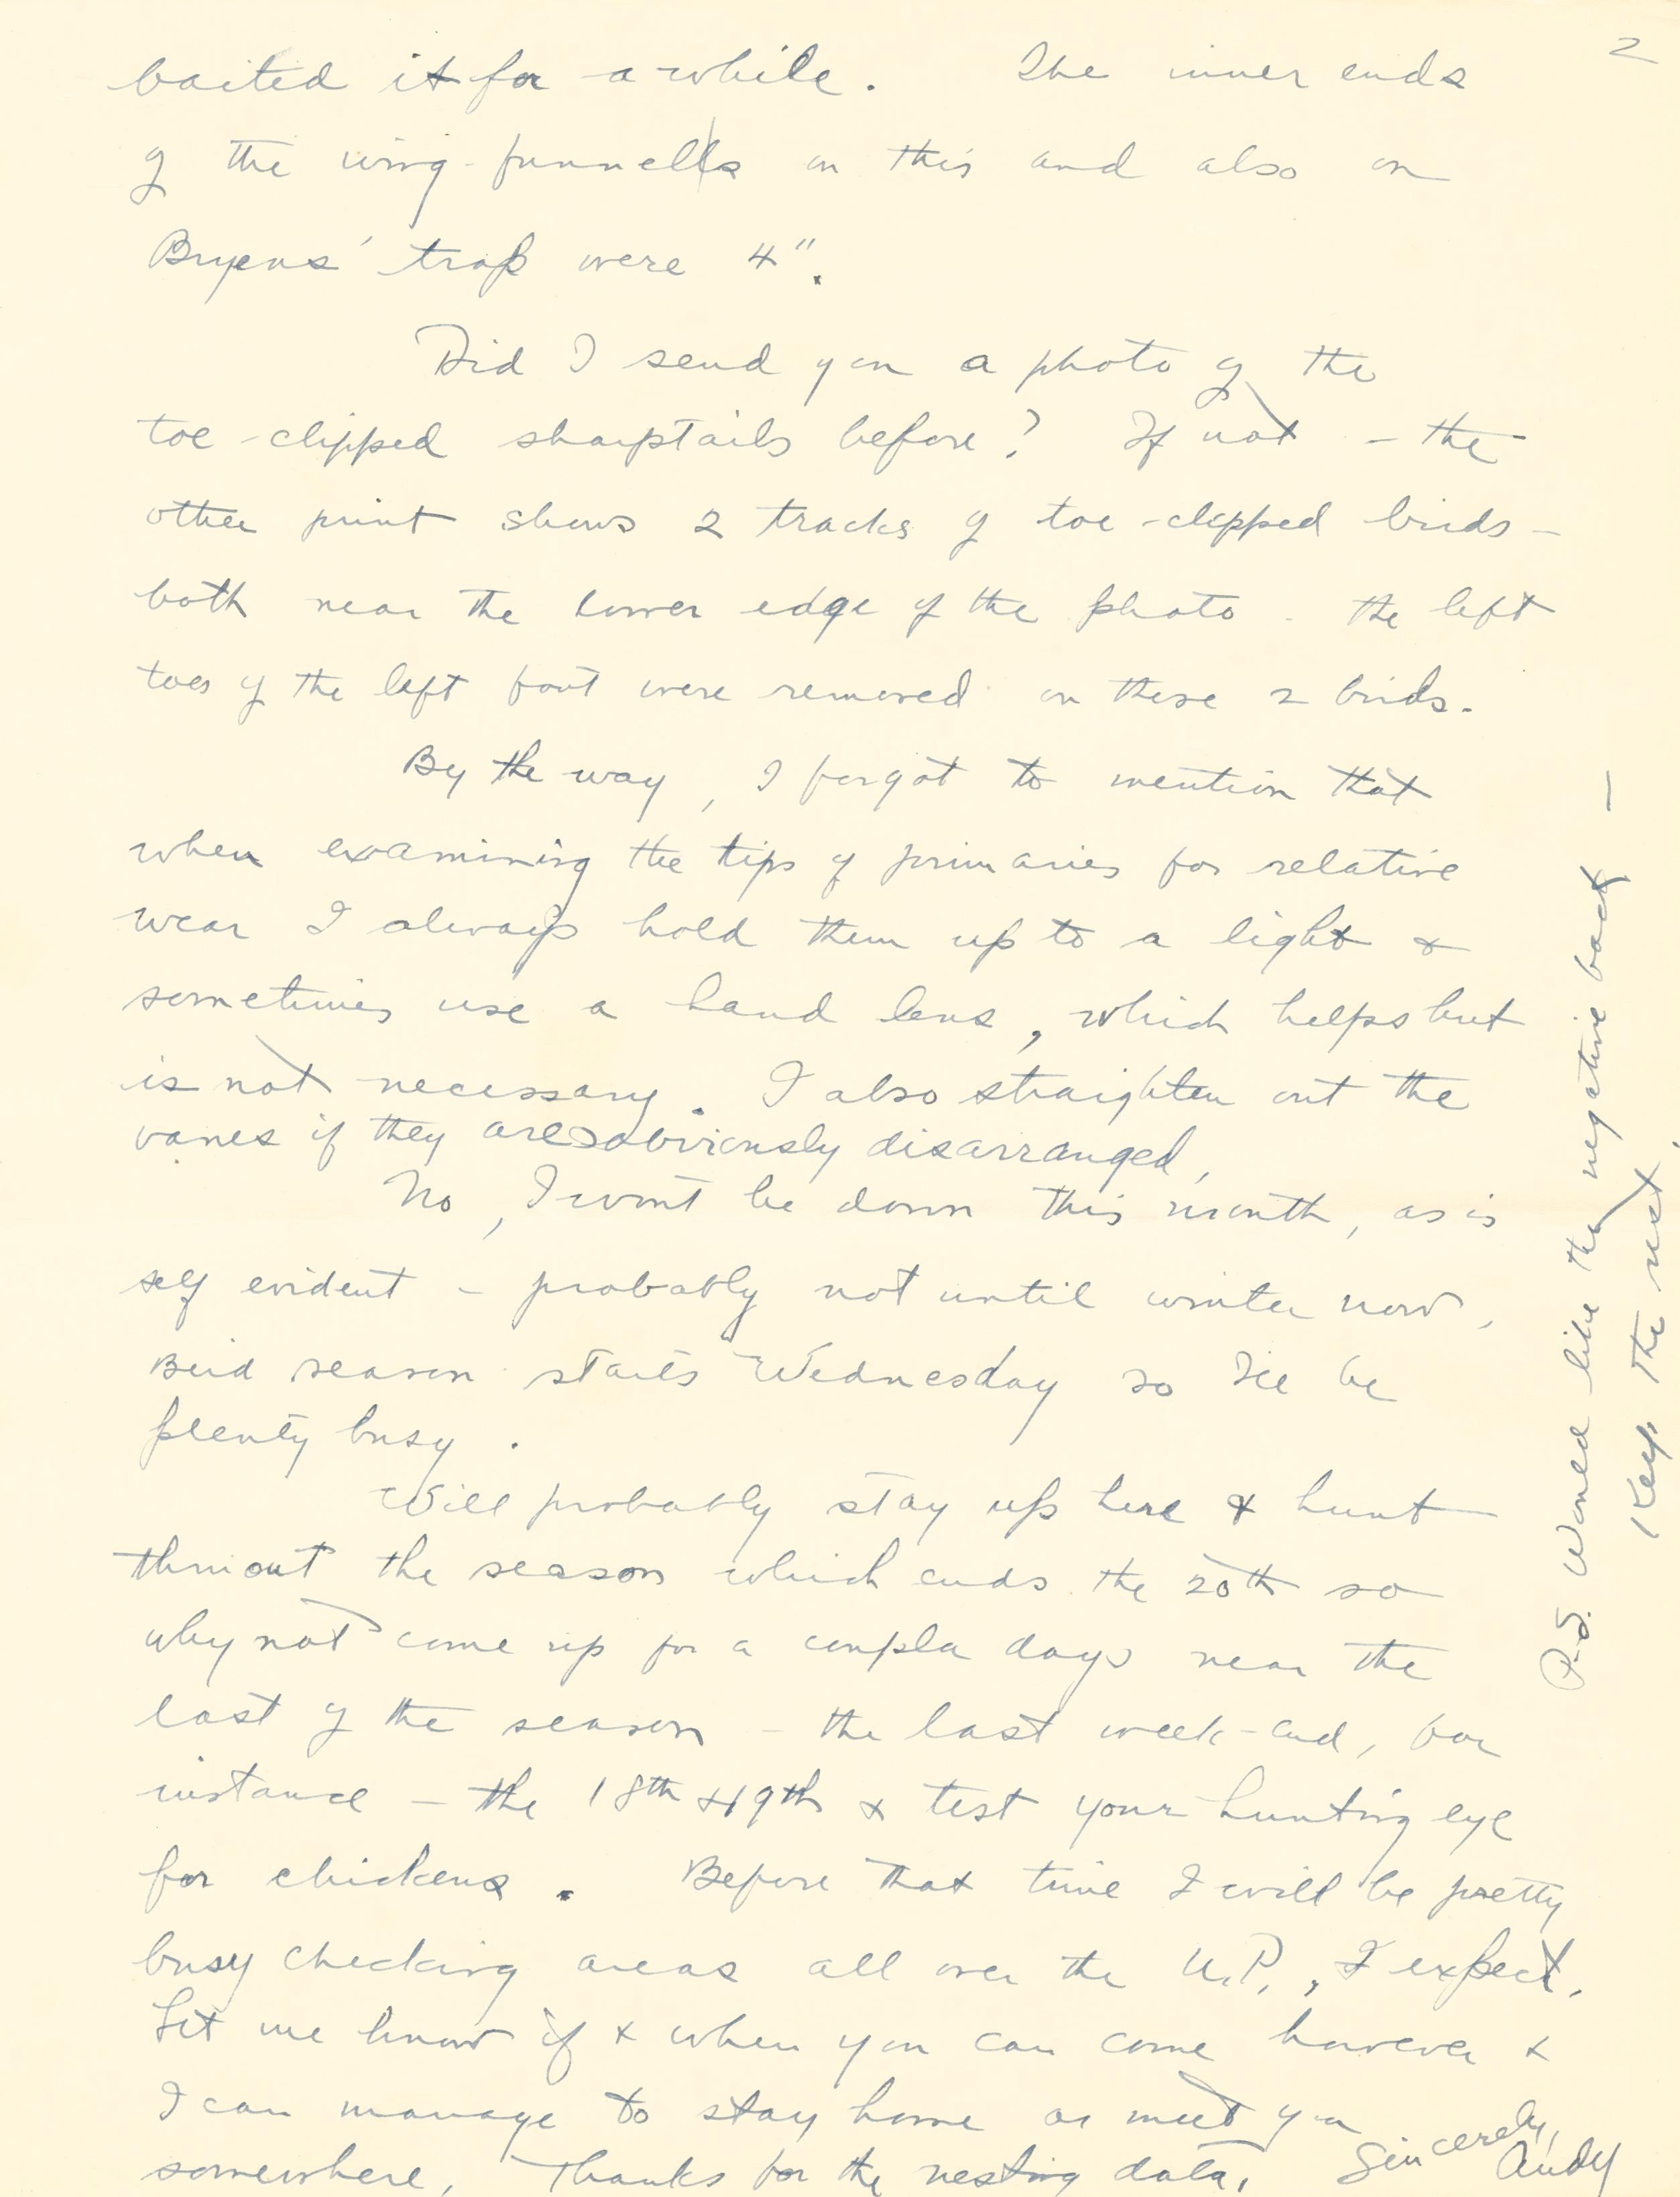 2
baited it for a while. The inner ends
of the wing-funnels on this and also on
Bryens' trap were 4".
Did I send you a photo of the
toe-clipped sharptails before? If not - the
other print shows 2 tracks of toe-clipped birds -
both near the lower edge of the photo. The left
toes of the left foot were removed on these 2 birds.
By the way, I forgot to mention that
when examining the tips of primaries for relative
wear I always hold them up to a light &
sometimes use a hand lens, which helps but
is not necessary. I also straighten out the
vanes if they are obviously disarranged.
No, I wont be down this month, as is
self evident - probably not until winter now.
Bird season starts Wednesday so I'll be
plenty busy.
Will probably stay up here & hunt
thruout the season which ends the 20th so
why not come up for a coupla days near the
last of the season - the last week-end, for
instance - the 18th & 19th & test your hunting eye
for chickens. Before that time I will be pretty
busy checking areas all over the U.P., I expect.
Let me know if & when you can come however &
I can manage to stay home or meet you
somewhere. Thanks for the nesting data.
Sincerely,
Andy
P.S. Would like the negative back -
Keep the rest.